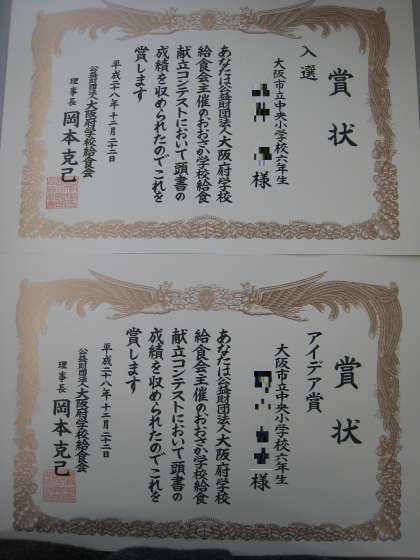 賞状
入選
大阪市立中央小学校六年生
様
あなたは公益財団法人大阪府学校
給食会主催のおおさか学校給食
献立コンテストにおいて頭書の
成績を収められたのでこれを
賞します
平成二十八年十二月二十二日
公益財団法人大阪府学校給食会
理事長 岡本克己
賞状
アイデア賞
大阪市立中央小学校六年生
様
あなたは公益財団法人大阪府学校
給食会主催のおおさか学校給食
献立コンテストにおいて頭書の
成績を収められたのでこれを
賞します
平成二十八年十二月二十二日
公益財団法人大阪府学校給食会
理事長 岡本克己